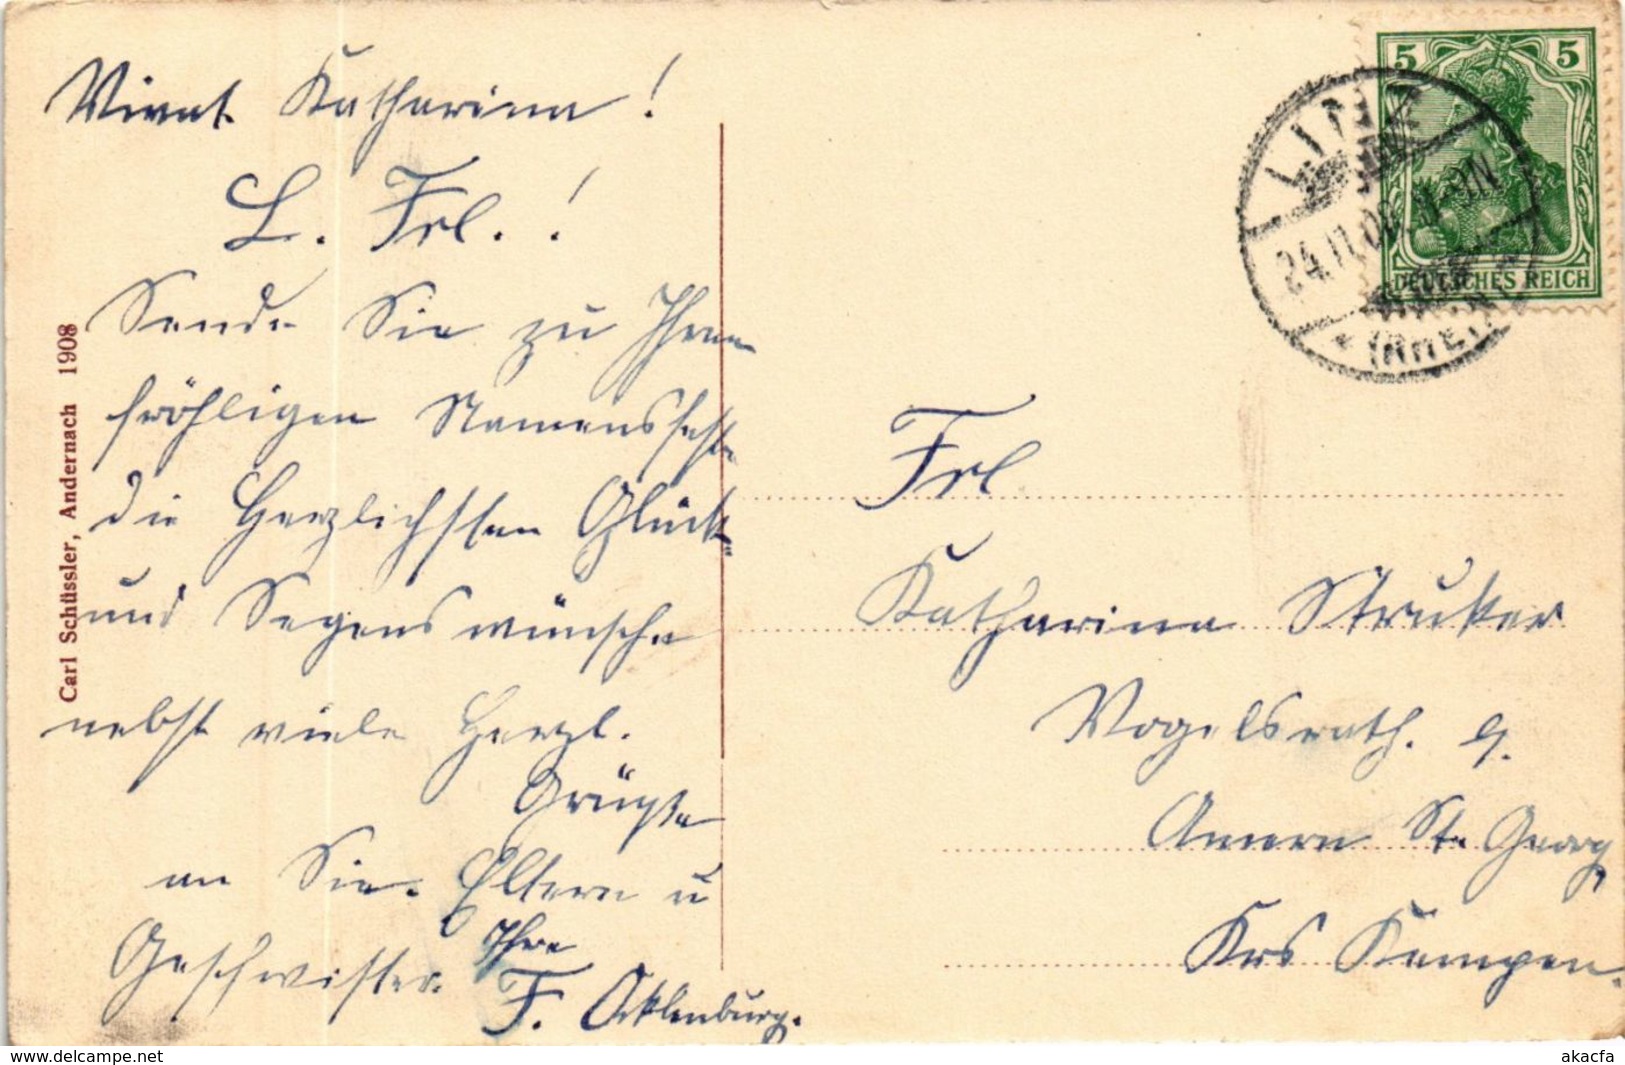 Vivat Katharina!
L. Frl.!
Sende Sie zu Ihrem
fröhligen Namensfeste
die Herzlichsten Glück-
und Segenswünsche
nebst viele Herzl.
Grüße
an Sie. Eltern u
Geschwister. Ihre
F. Ocklenburg.
Carl Schüssler, Andernach 1908
5 5
DEUTSCHES REICH
LINN
24.11.08. 8-9N
(RHEIN)
Frl
Katharina Strucker
Vogelsrath. 
Amern St. Georg,
Krs Kempen.
www.delcampe.net
akacfa